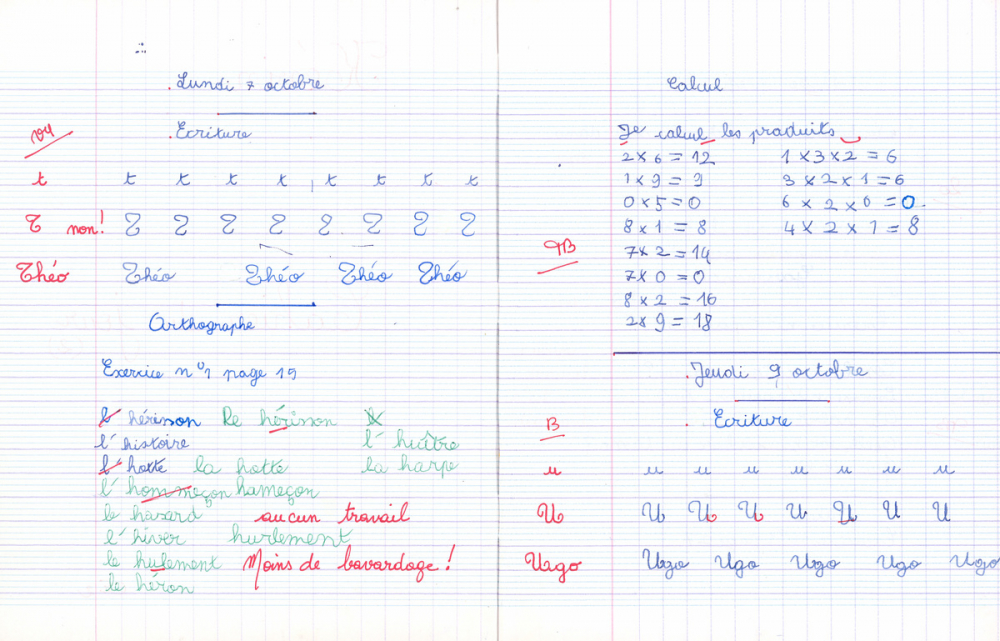 .Lundi 7 octobre
vu .Ecriture
t t t t t t t t t
T non! T T T T T T T T
Théo Théo Théo Théo Théo
Orthographe
Exercice n°1 page 15
l' hérinon Le hérinon
l'histoire l'huître
l'hotte la hotte la harpe
l'hommeçon hameçon
le hasard aucun travail
l'hiver hurlement
le hulement Moins de bavardage!
le héron
Calcul
Je calcul les produits
2 x 6 = 12 1 x 3 x 2 = 6
1 x 9 = 9 3 x 2 x 1 = 6
0 x 5 = 0 6 x 2 x 0 = 0.
8 x 1 = 8 4 x 2 x 1 = 8
TB 7 x 2 = 14
7 x 0 = 0
8 x 2 = 16
2 x 9 = 18
.Jeudi 9 octobre
B .Ecriture
u u u u u u u u
U U U U U U U U
Ugo Ugo Ugo Ugo Ugo Ugo